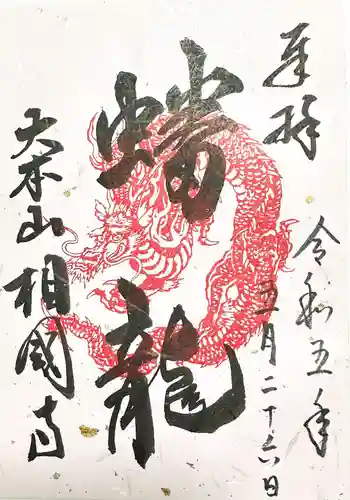 奉拝
令和五年
五月二十六日
蟠龍
大本山相國寺